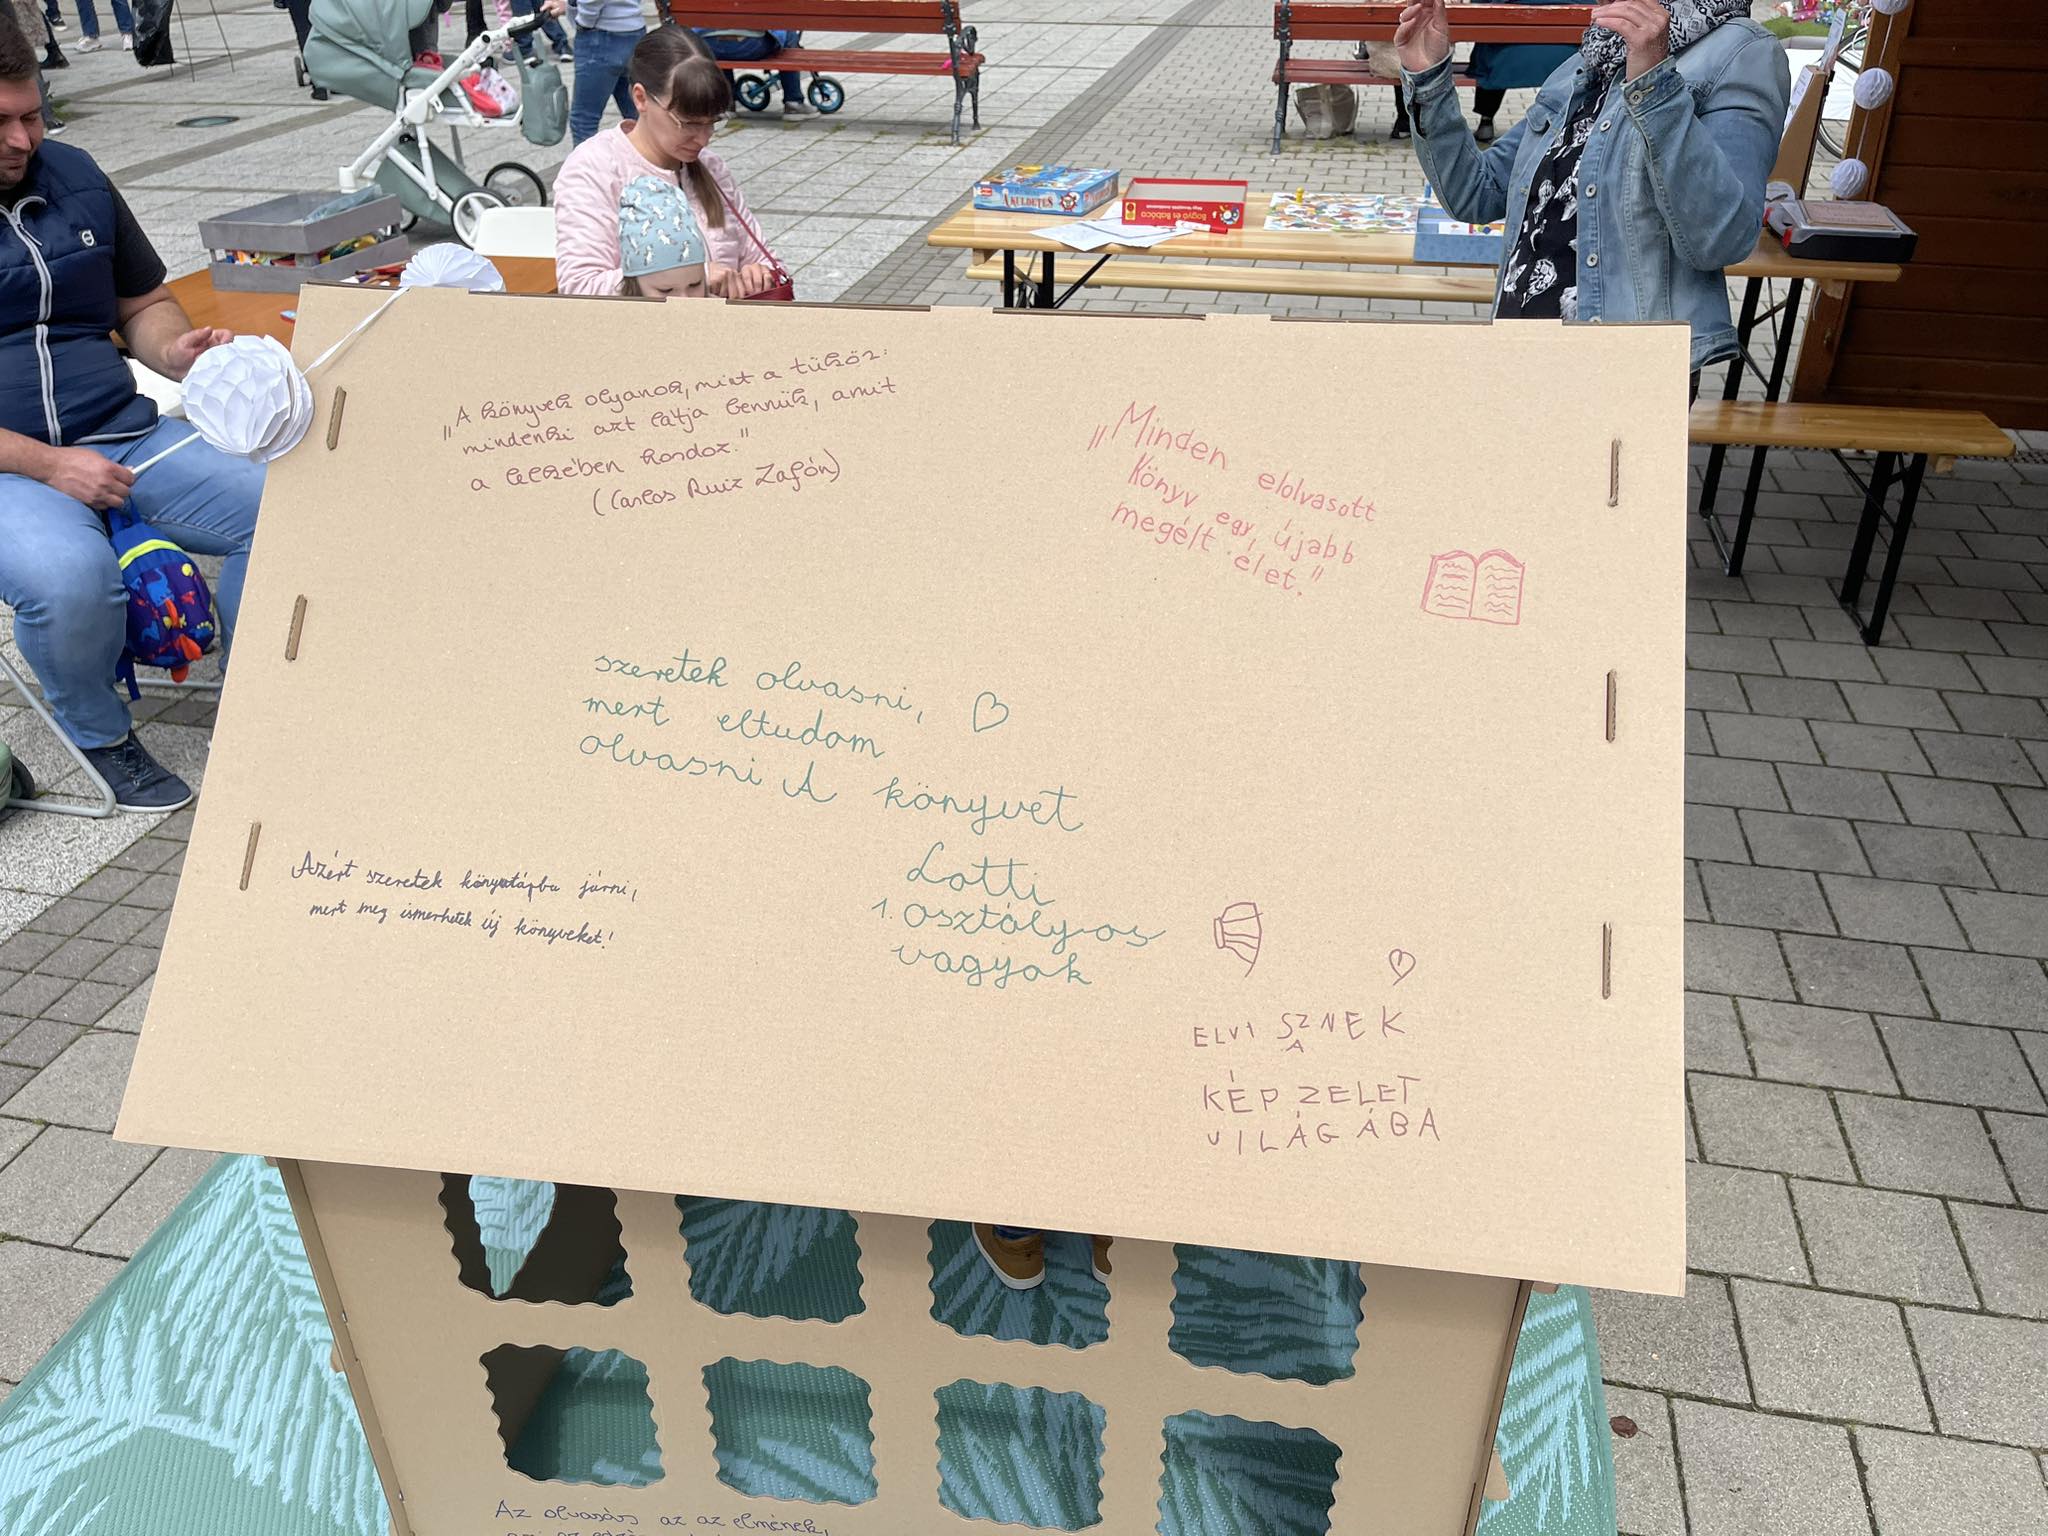 KÜLDETÉS
Bogyó és Babóca
„A könyvek olyanok, mint a tükör:
mindenki azt látja bennük, amit
a lelkében hordoz."
(Carlos Ruiz Zafón)
„Minden elolvasott
könyv egy, újabb
megélt élet."
szeretek olvasni,
mert eltudom
olvasni A könyvet
Lotti
1. osztály-os
vagyok
Azért szeretek könyvtárba járni,
mert meg ismerhetek új könyveket!
ELVISZNEK
A
KÉPZELET
VILÁGÁBA
Az olvasás az az elmének,